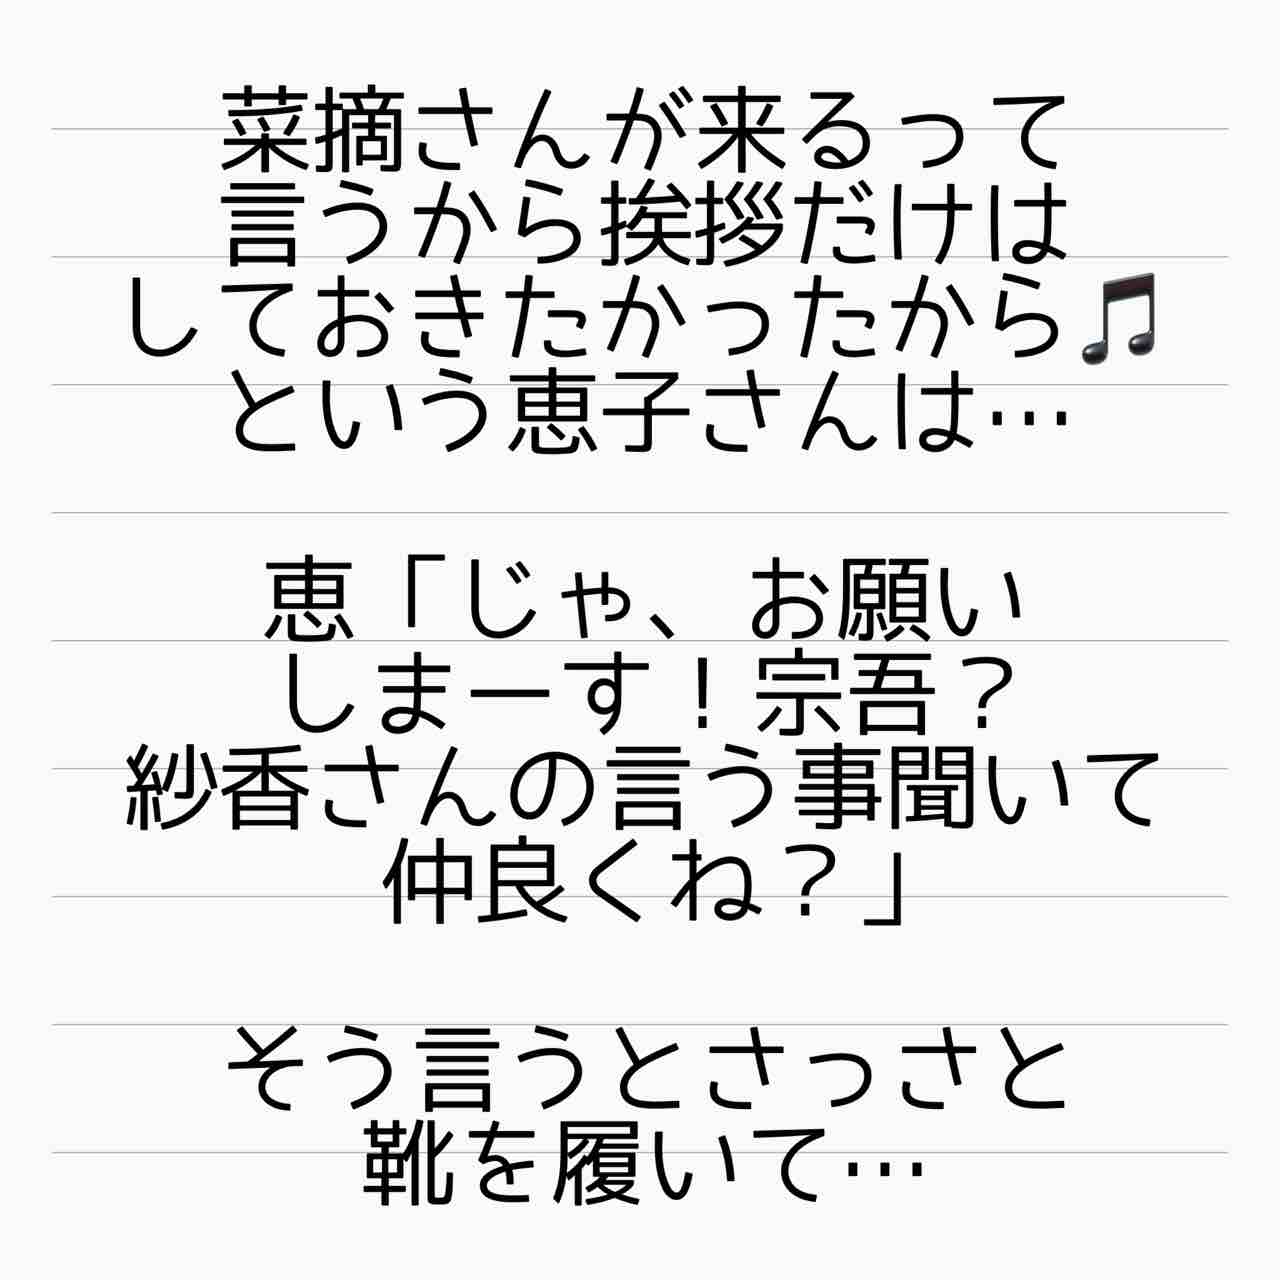 菜摘さんが来るって
言うから挨拶だけは
しておきたかったから🎵
という恵子さんは…
恵「じゃ、お願い
しまーす！宗吾？
紗香さんの言う事聞いて
仲良くね？」
そう言うとさっさと
靴を履いて…